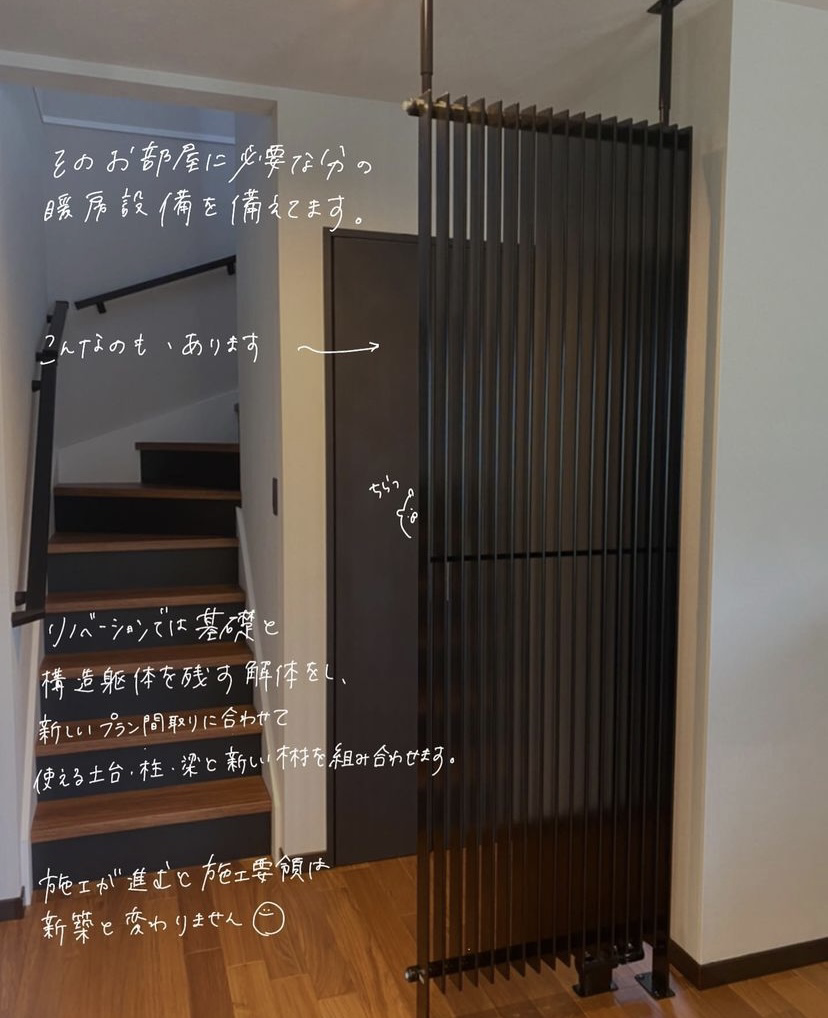 そのお部屋に必要な分の
暖房設備を備えてます。
こんなのも、あります
ちらっ
リノベーションでは基礎と
構造躯体を残す解体をし、
新しいプラン間取りに合わせて
使える土台・柱・梁と新しい木材を組み合わせます。
施工が進むと施工要領は
新築と変わりません